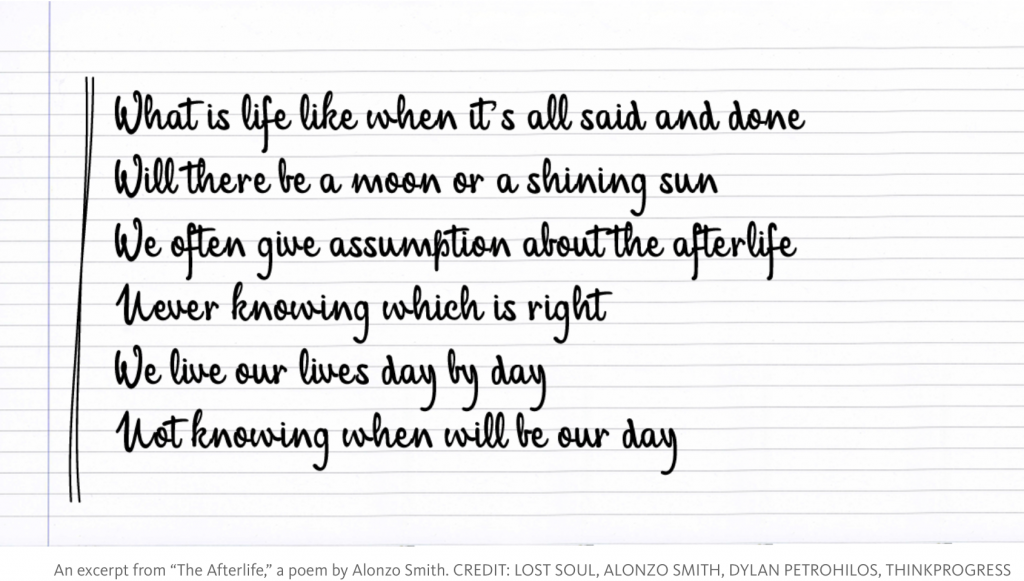 What is life like when it's all said and done
Will there be a moon or a shining sun
We often give assumption about the afterlife
Never knowing which is right
We live our lives day by day
Not knowing when will be our day
An excerpt from “The Afterlife,” a poem by Alonzo Smith. CREDIT: LOST SOUL, ALONZO SMITH, DYLAN PETROHILOS, THINKPROGRESS